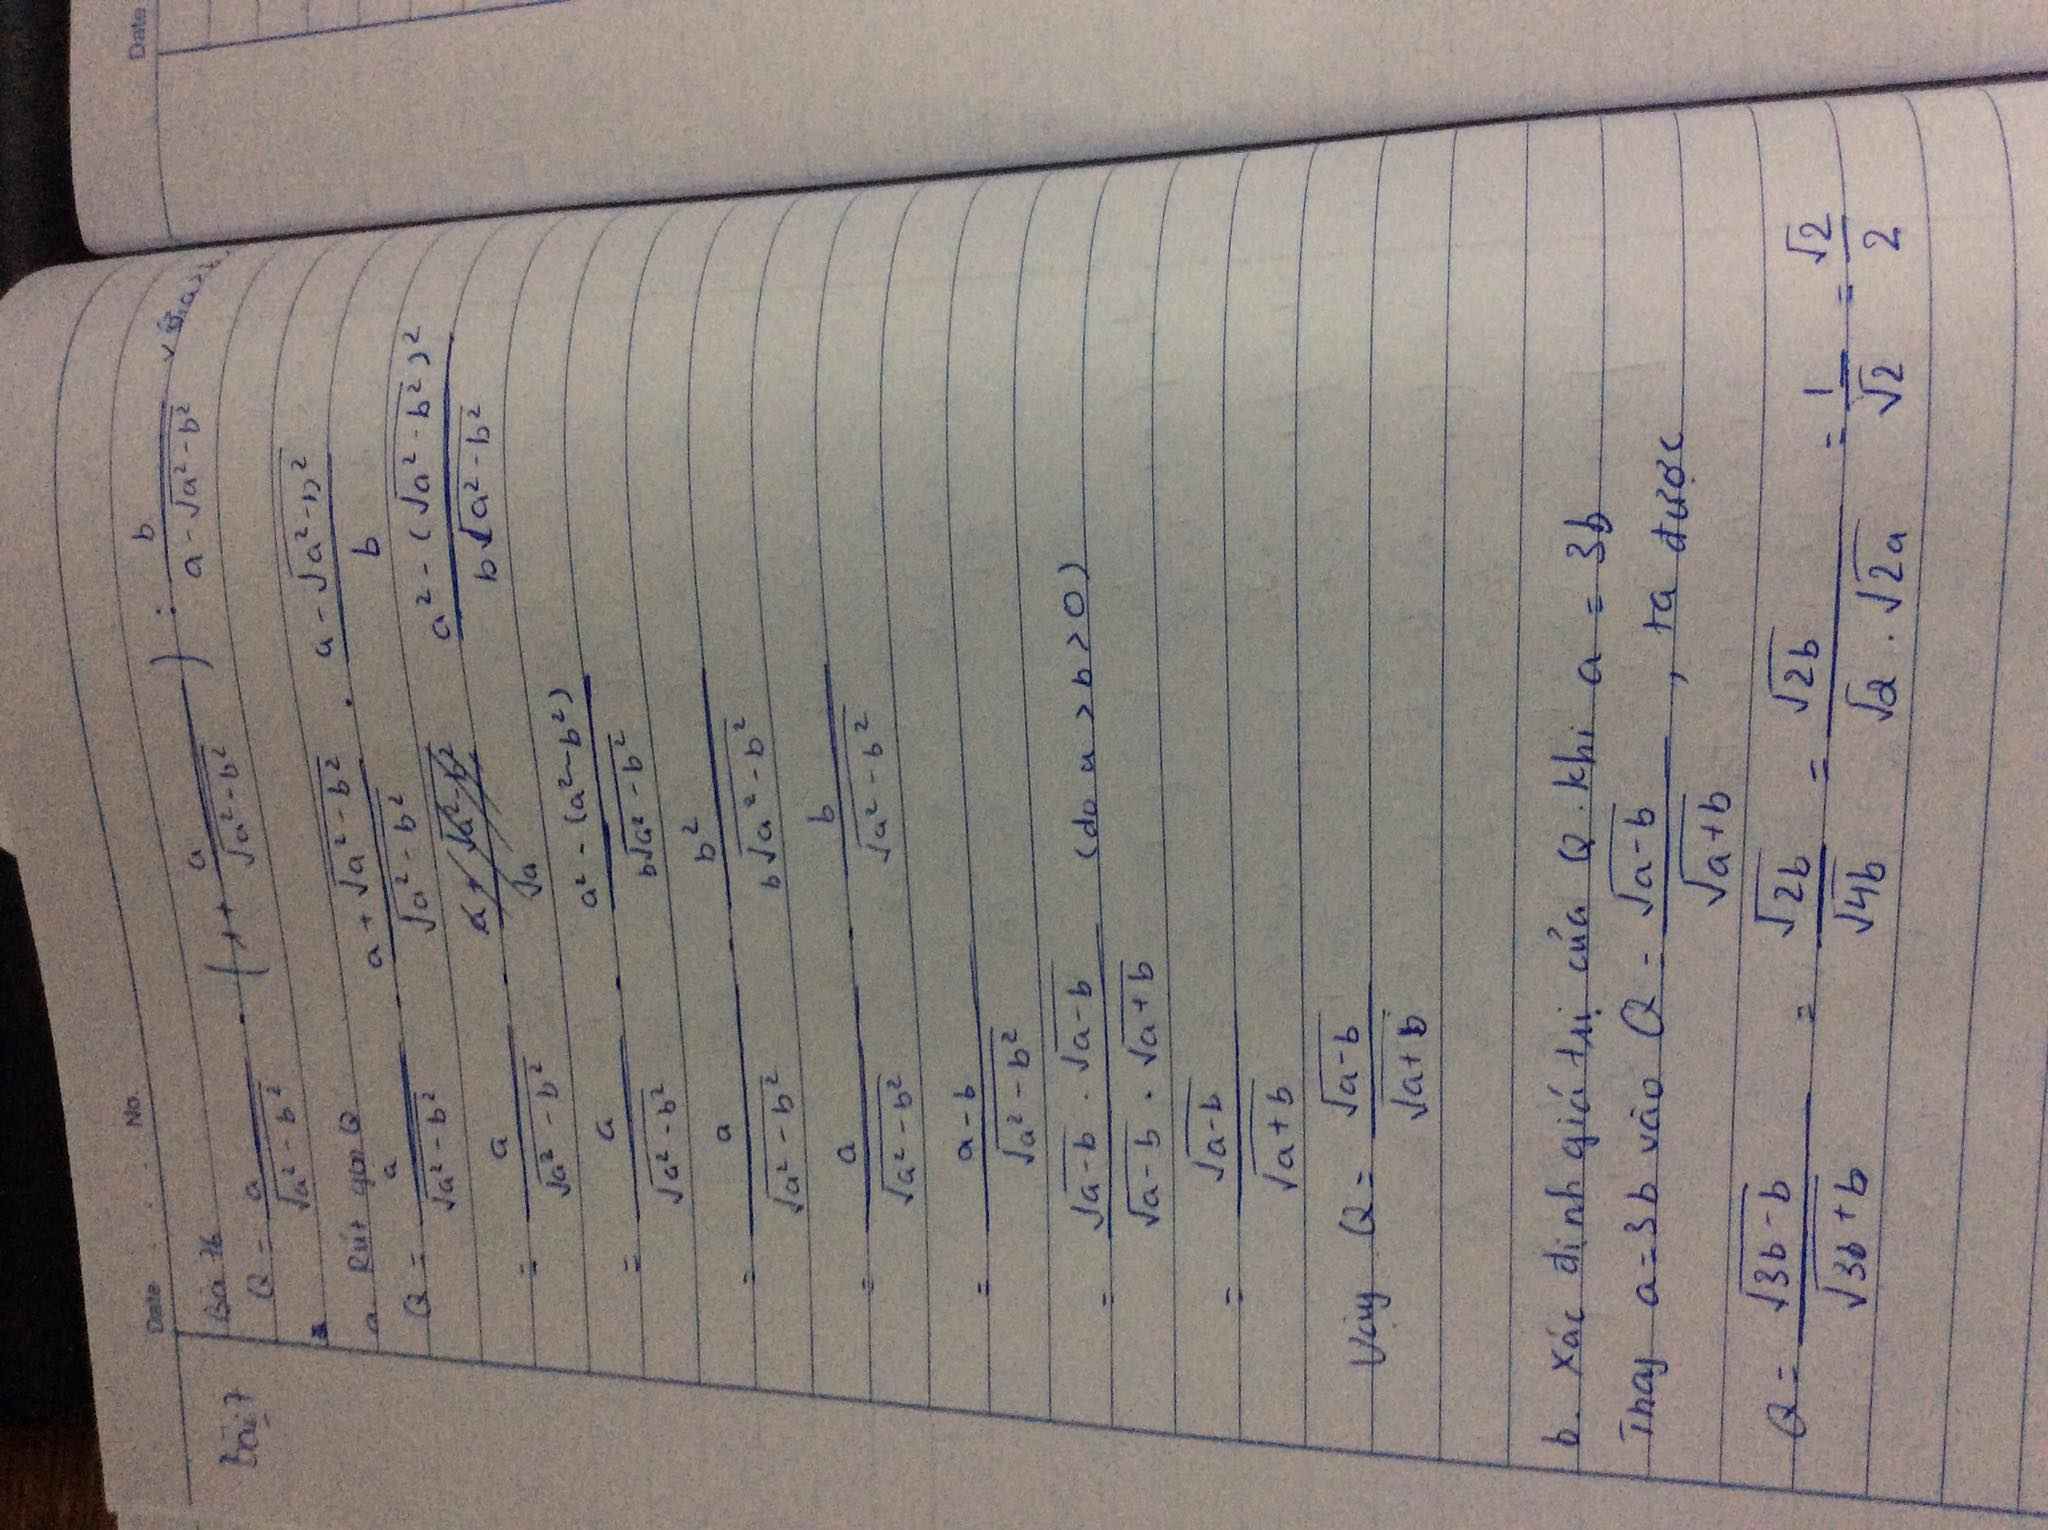 Date No.
Bài 7
Bài 76
Q = a/√(a² - b²) - (1 + a/√(a² - b²)) : b/(a - √(a² - b²)) với a>
a Rút gọn Q
Q = a/√(a² - b²) - (a + √(a² - b²))/√(a² - b²) . (a - √(a² - b²))/b
= a/√(a² - b²) - (a² - (√(a² - b²))²)/(b√(a² - b²))
= a/√(a² - b²) - (a² - (a² - b²))/(b√(a² - b²))
= a/√(a² - b²) - b²/(b√(a² - b²))
= a/√(a² - b²) - b/√(a² - b²)
= (a - b)/√(a² - b²)
= (√(a-b) . √(a-b))/(√(a-b) . √(a+b)) (do a > b > 0)
= √(a-b)/√(a+b)
Vậy Q = √(a-b)/√(a+b)
b. Xác định giá trị của Q khi a = 3b
Thay a = 3b vào Q = √(a-b)/√(a+b), ta được
Q = √(3b-b)/√(3b+b) = √(2b)/√(4b) = √(2b)/(√2 . √(2a)) = 1/√2 = √2/2
Date